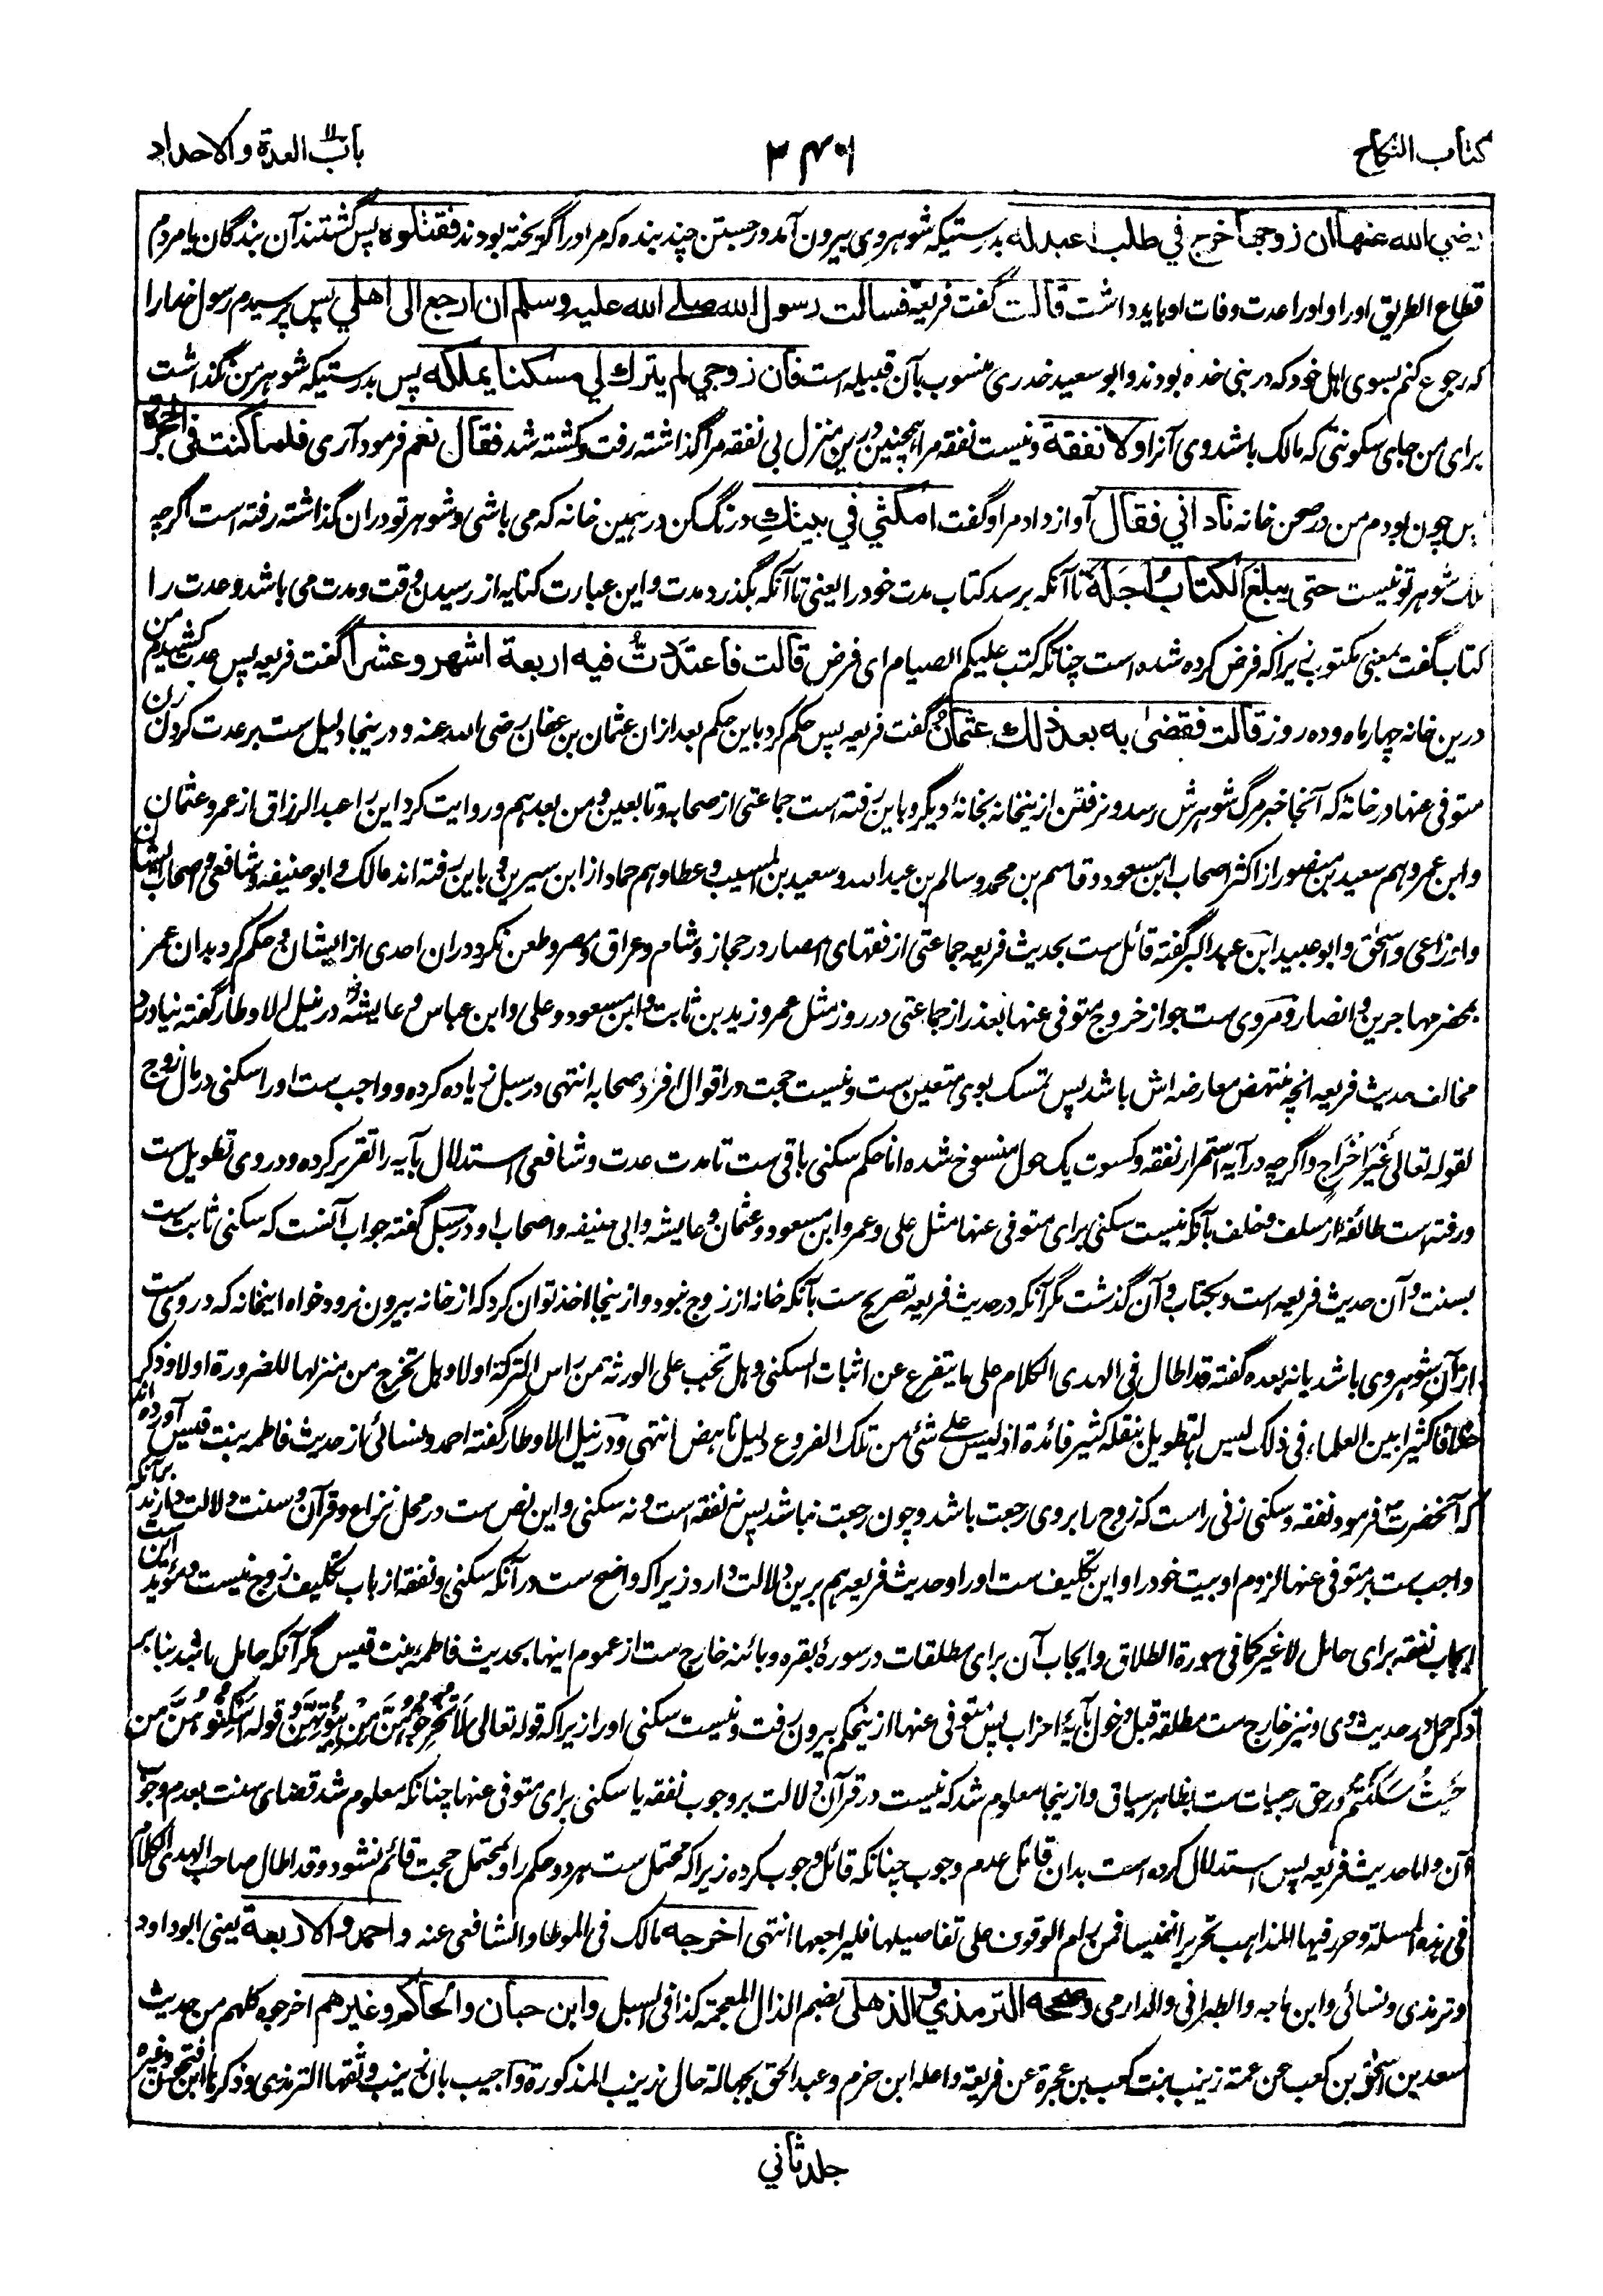 كتاب النكاح
٣٤٠١
باب العدة والاحداد
رضي الله عنها ان زوجها خرج في طلب اعبد له بدرستیکه شوهر وی بیرون آمد در جستن چند بنده که مر او را گریخته بودند فقتلوه پس کشتند آن بندگان یا مردم
قطاع الطریق او را و او را عدت وفات او باید داشت قالت گفت فریعه فسالت رسول الله صلى الله عليه وسلم ان ارجع الى اهلي پس پرسیدم رسول خدا را
که رجوع کنم بسوی اهل خود که در بنی خدره بودند و ابو سعید خدری منسوب بآن قبیله است فان زوجي لم يترك لي مسكنا يملكه پس بدرستیکه شوهر من نگذاشت
برای من جای سکونتی که مالک باشد وی آنرا ولا نفقة و نیست نفقه مرا همچنین درین منزل بی نفقه مرا گذاشته رفت و کشته شد فقال نعم فرمود آری فلما كنت في الحجرة
پس چون بودم من در صحن خانه ناداني فقال آواز داد مرا و گفت امكثي في بيتك درنگ کن در همین خانه که می باشی و شوهر تو دران گذاشته رفته است اگرچه
ملک شوهر تو نیست حتى يبلغ الكتاب اجله تا آنکه برسد کتاب مدت خود را یعنی تا آنکه بگذرد مدت و این عبارت کنایه از رسیدن وقت و مدت می باشد و عدت را
کتاب گفت بمعنی مکتوب زیرا که فرض کرده شده است چنانکه کتب علیکم الصیام ای فرض قالت فاعتددت فيه اربعة اشهر وعشرا گفت فریعه پس عدت کشیدم من
درین خانه چهار ماه و ده روز قالت فقضى به بعد ذلك عثمان گفت فریعه پس حکم کرد باین حکم بعد ازان عثمان بن عفان رضی الله عنه و درینجا دلیل ست بر عدت کردن زن
متوفی عنها در خانه که آنجا خبر مرگ شوهرش رسد و نرفتن ازینخانه بخانهٔ دیگر و باین رفته است جماعتی از صحابه و تابعین و من بعدهم و روایت کرد این را عبد الرزاق از عمر و عثمان
و ابن عمر و هم سعید بن منصور از اکثر اصحاب ابن مسعود و قاسم بن محمد و سالم بن عبد الله و سعید بن المسیب و عطا و هم حماد از ابن سیرین و باین رفته اند مالک و ابو حنیفه و شافعی و اصحاب ایشان
و اوزاعی و اسحٰق و ابو عبید ابن عبد البر گفته قائل ست بحدیث فریعه جماعتی از فقهای امصار در حجاز و شام و عراق و مصر و طعن نکرد دران احدی از ایشان و حکم کرد بدان عمر
بمحضر مهاجرین و انصار و مروی ست جواز خروج متوفی عنها بعذر از جماعتی در روز مثل عمر و زید بن ثابت و ابن مسعود و علی و ابن عباس و عایشه و در نیل الاوطار گفته نیامد در
مخالف حدیث فریعه انچه منتهض معارضه اش باشد پس تمسک بوی متعین ست و نیست حجت در اقوال افراد صحابه انتهی در سبل زیاده کرده و واجب ست او را سکنی در مال زوج
لقوله تعالى غير اخراج و اگرچه در آیه استمرار نفقه و کسوت یک حول منسوخ شده اما حکم سکنی باقی ست تا مدت عدت و شافعی استدلال بآیه را تقریر کرده و در وی تطویل ست
و رفته است طائفه از سلف و خلف بآنکه نیست سکنی برای متوفی عنها مثل علی و عمر و ابن مسعود و عثمان و عایشه و ابی حنیفه و اصحاب او در سبل گفته جواب آنست که سکنی ثابت ست
بسنت و آن حدیث فریعه است و بکتاب و آن گذشت مگر آنکه در حدیث فریعه تصریح ست بآنکه خانه از زوج نبود و ازینجا اخذ توان کرد که از خانه بیرون نرود خواه اینخانه که در وی ست
از آن شوهر وی باشد یا نه بعده گفته قد اطال فی الهدی الکلام علی ما یتفرع عن اثبات السکنی و هل تجب علی الورثة من راس الترکة او لا و هل تخرج من منزلها للضرورة او لا و ذکر
خلافا کثیرا بین العلماء فی ذلک لیس لتطویل بنقله کثیر فائدة اذ لیس علی شیٔ من تلک الفروع دلیل ناهض انتهی و در نیل الاوطار گفته احمد و نسائی از حدیث فاطمه بنت قیس آورده اند
که آنحضرت فرمود نفقه و سکنی زنی راست که زوج را بر وی رجعت باشد و چون رجعت نباشد پس نه نفقه است و نه سکنی و این نص ست در محل نزاع و قرآن و سنت دلالت دارند بر آنکه
واجب ست بر متوفی عنها لزوم او بیت خود را و این تکلیف ست او را و حدیث فریعه هم برین دلالت دارد زیرا که واضح ست در آنکه سکنی و نفقه از باب تکلیف زوج نیست و مؤید این است
ایجاب نفقه برای حامل لا غیر کما فی سورة الطلاق و ایجاب آن برای مطلقات در سورهٔ بقره و بائنه خارج ست از عموم اینها بحدیث فاطمه بنت قیس مگر آنکه حامل باشد بنا بر
ذکر حمل در حدیث وی و نیز خارج ست مطلقه قبل دخول بآیهٔ احزاب پس متوفی عنها ازینحکم بیرون رفت و نیست سکنی او را زیرا که قوله تعالی لا تخرجوهن من بیوتهن و قوله اسکنوهن من
حیث سکنتم در حق رجعیات ست بظاهر سیاق و ازینجا معلوم شد که نیست در قرآن دلالت بر وجوب نفقه یا سکنی برای متوفی عنها چنانکه معلوم شد قضای سنت بعدم وجوب
آن و اما حدیث فریعه پس استدلال کرده است بدان قائل عدم وجوب چنانکه قائل وجوب کرده زیرا که محتمل ست هر دو حکم را و بمحتمل حجت قائم نشود و قد اطال صاحب الهدی الکلام
فی هذه المسئلة و حرر فیها المذاهب تحریرا نفیسا فمن رام الوقوف علی تفاصیلها فلیراجعها انتهی اخرجه مالک فی الموطا والشافعی عنه و احمد والاربعة یعنی ابو داود
و ترمذی و نسائی و ابن ماجه و الطبرانی و الدارمی وصححه الترمذي والذهلی بضم الذال المعجمة کذا فی السبل وابن حبان والحاكم وغيرهم اخرجوه کلهم من حدیث
سعد بن اسحٰق بن کعب عن عمته زینب بنت کعب بن عجرة عن فریعة و اعله ابن حزم و عبد الحق بجهالة حال زینب المذکورة و اجیب بان زینب وثقها الترمذی و ذکرها ابن فتحون و غیره
جلد ثاني